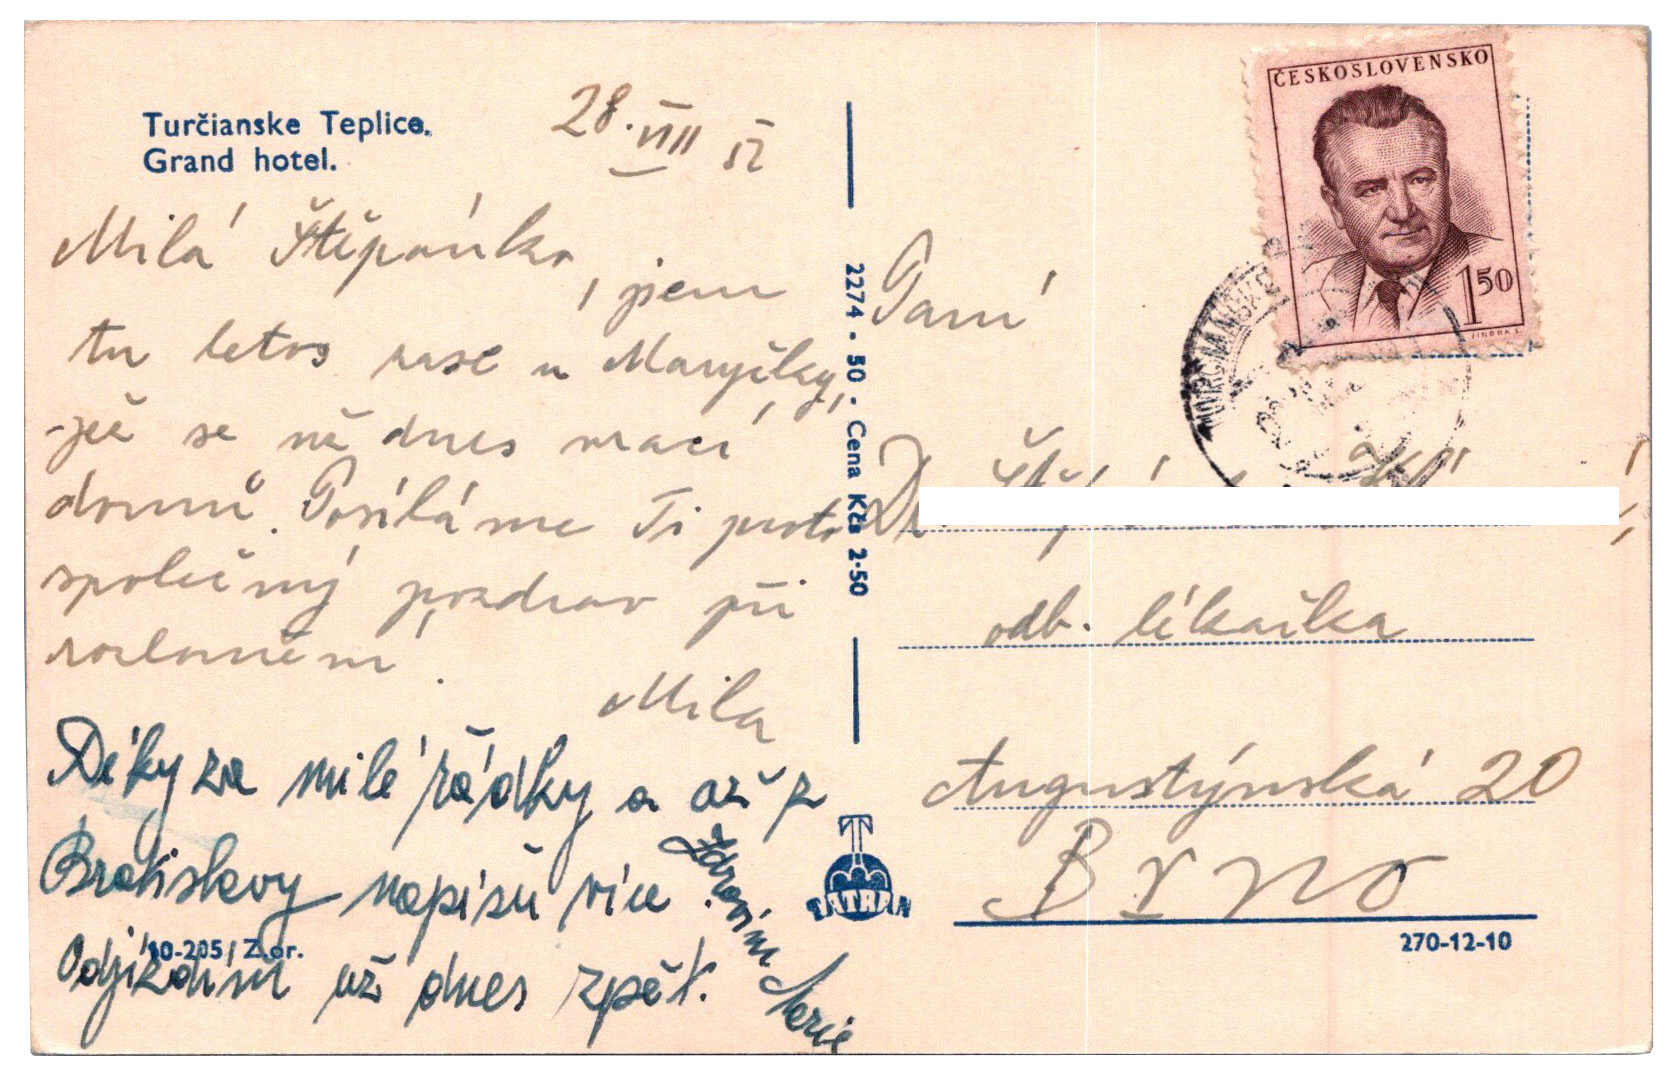 Turčianske Teplice.
Grand hotel.
28. VIII 52
Milá Štěpánko, jem
tu letos zase u Maryčky,
jež se už dnes vrací
domů. Posíláme Ti proto
společný pozdrav při
rozloučení.
Mila
Díky za milé řádky a až z
Bratislavy napíšu více.
Odjíždím už dnes zpět.
Zdravím Marie
10-205/ Z.or.
2274 - 50 - Cena Kčs 2·50
TATRAN
ČESKOSLOVENSKO
1 50
JINDRA S.
Paní
odb. lékařka
Augustýnská 20
Brno
270-12-10